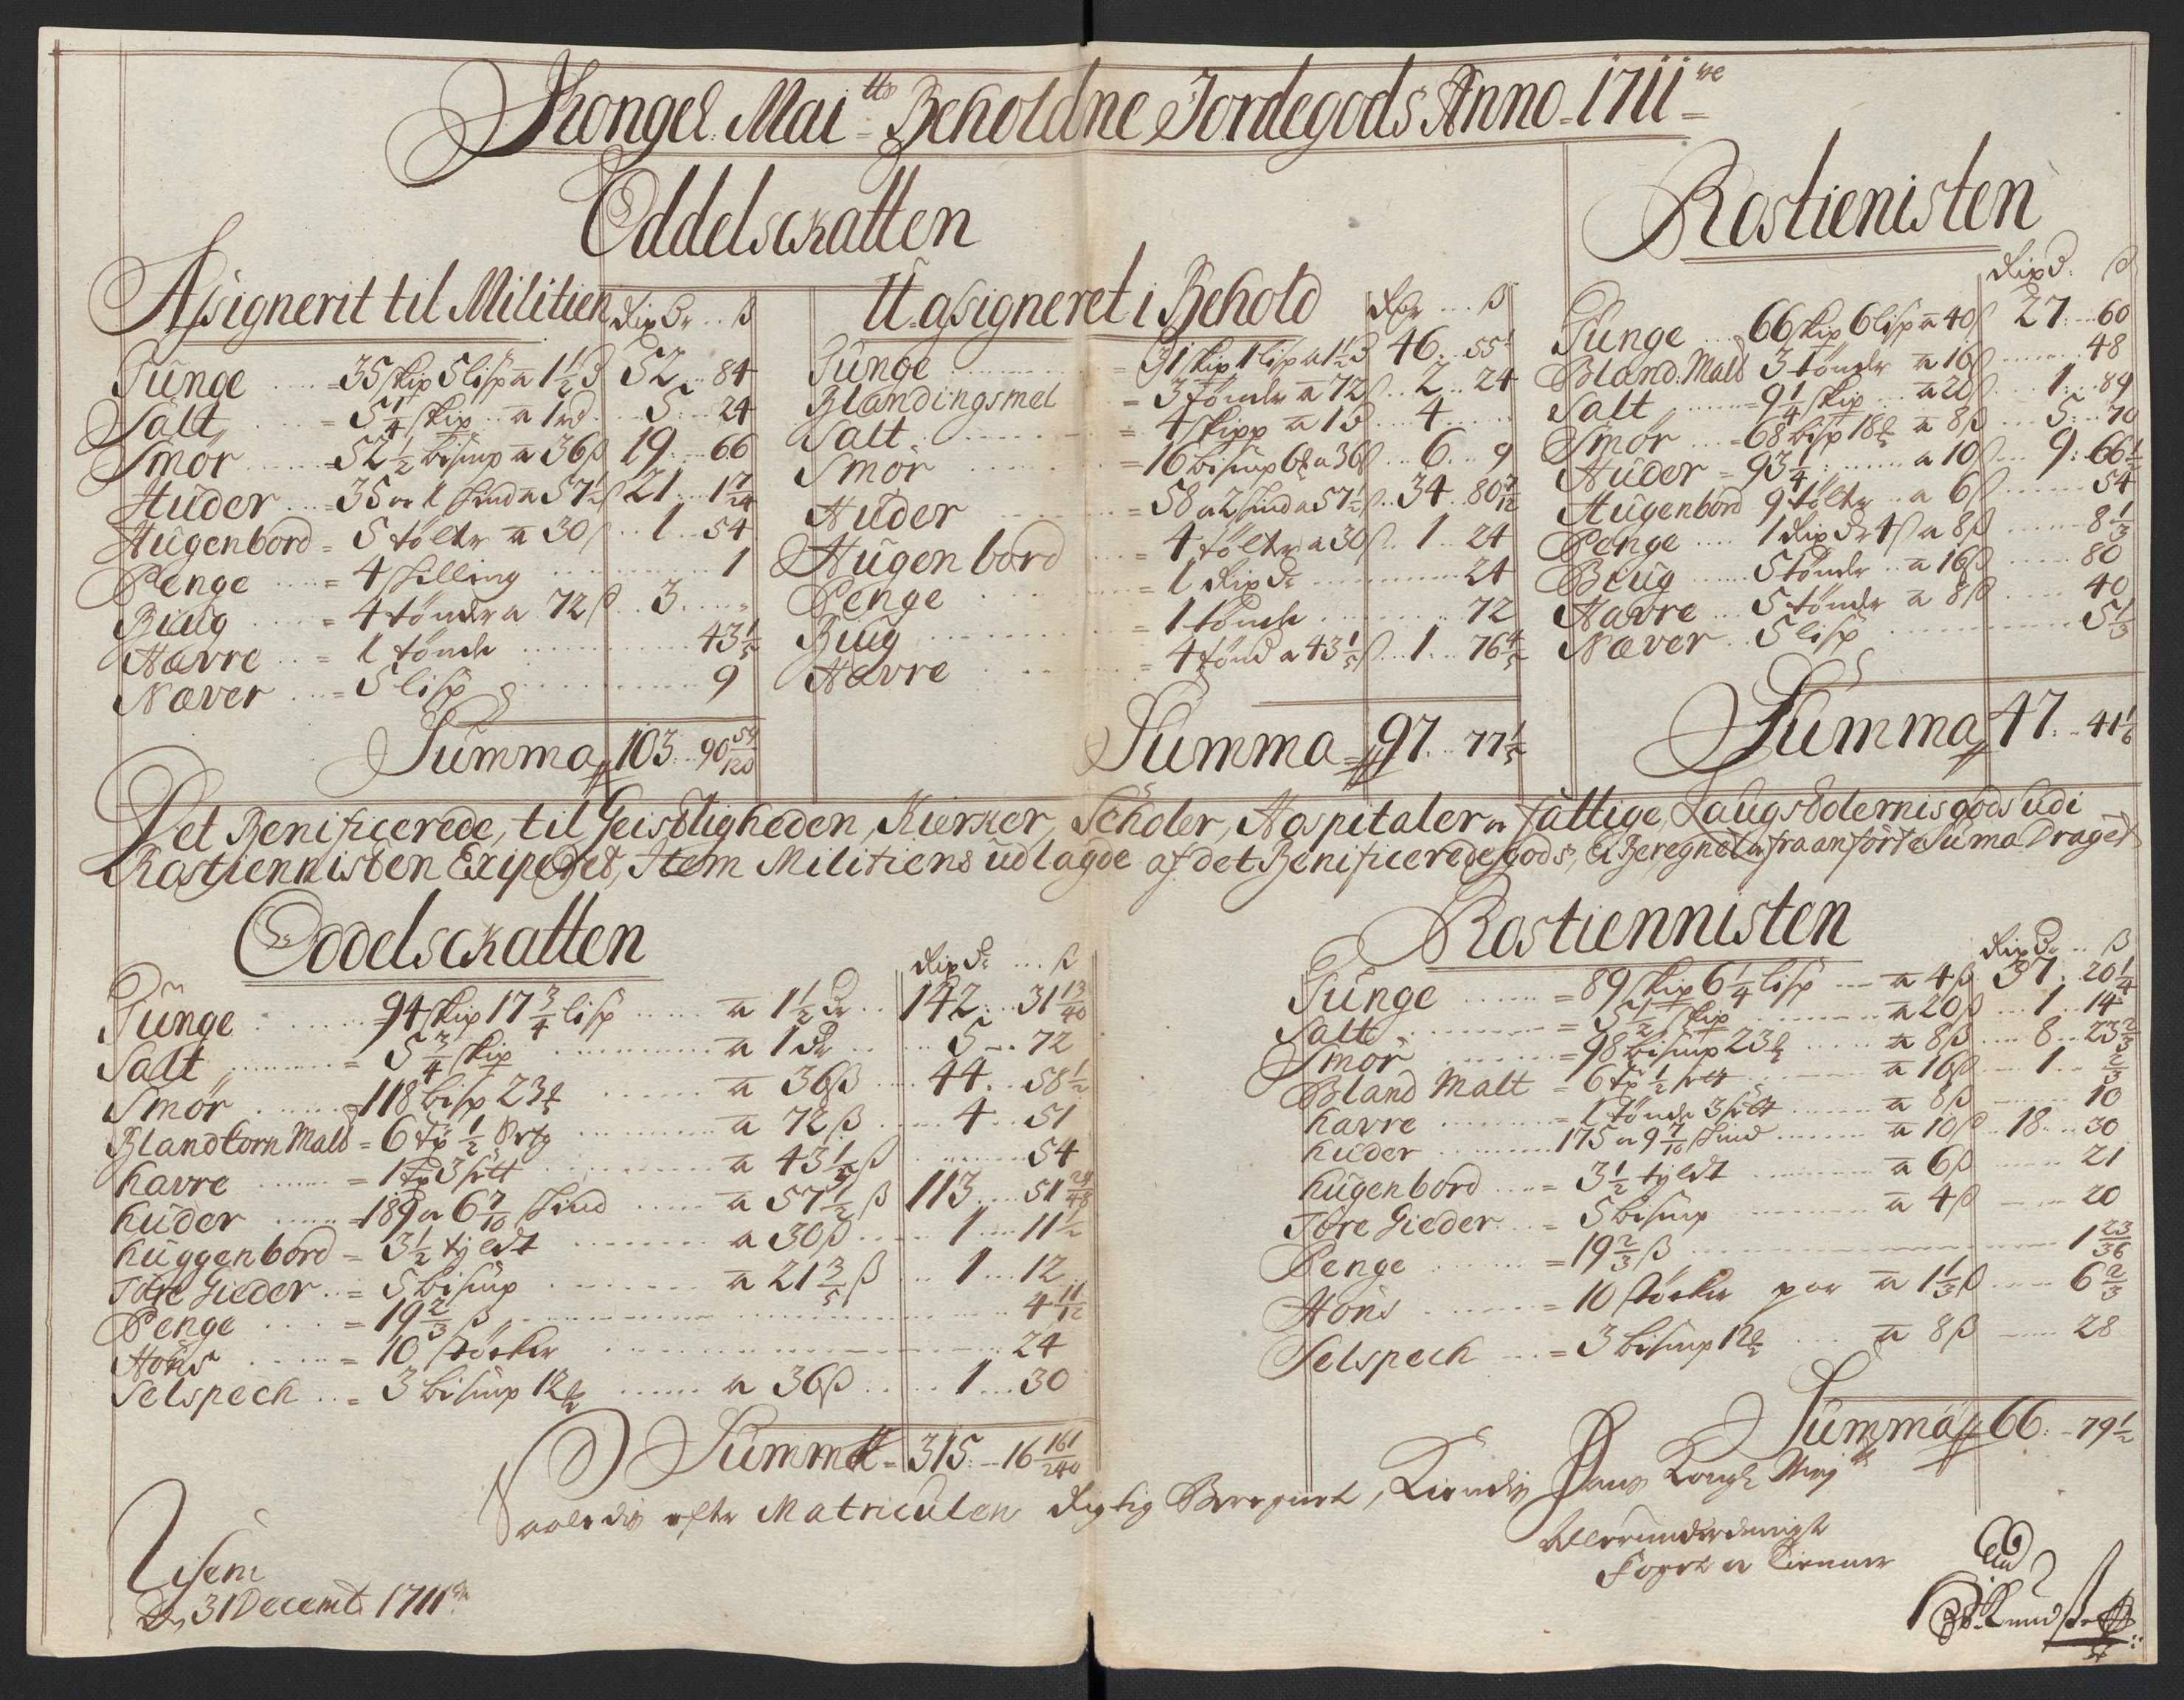 Kongel. Mai^tts Beholdne Jordegods Anno 1711^ve
Oddelsckatten
Assignerit til Militien
Rixdr ß
Tunge = 35 skip 5 lisp a 1½ d 52 84
Salt = 5¼ skip a 1 rd 5 24
Smör = 52½ bismp a 36 ß 19 66
Huder = 35 oc 1 skind a 57½ ß 21 1 7/24
Hugenbord = 5 tølter a 30 ß 1 54
Penge = 4 skilling 1
Biug = 4 tønder a 72 ß 3
Havre = 1 tønde 43 1/5
Næver = 5 lisp 9
Summa 103 90 59/120
U-assigneret i Behold
Rdr ß
Tunge = 31 skip 1 lisp a 1½ d 46 55
Blandingsmel = 3 tønder a 72 ß 2 24
Salt = 4 skipp a 1 d 4
Smör = 16 bismp 6 a 36 ß 6 9
Huder = 58 oc 2 skind a 57½ ß 34 80 7/12
Hugenbord = 4 tølter a 30 ß 1 24
Penge = 1 Rixdr 24
Biug = 1 tønde 72
Havre = 4 tønd a 43 1/5 ß 1 76 4/5
Summa 97 77 1/5
Rostienisten
Rixd. ß
Tunge 66 skip 6 lisp a 40 ß 27 60
Bland. Mald 3 tønder a 16 ß 48
Salt = 9¼ skip a 20 ß 1 89
Smör = 68 bisp 18 a 8 ß 5 70
Huder = 93¼ a 10 ß 9 66½
Hugenbord 9 tølter a 6 ß 54
Penge 1 Rixdr 4 ß a 8 ß 8⅓
Biug 5 tønder a 16 ß 80
Havre 5 tønder a 8 ß 40
Næver 5 lisp 5⅓
Summa 47 41 1/6
Det Benificerede, til Geistligheden, Kiercker, Scholer, Hospitaler oc fattige, Laugsödernis gods udi
Rostiennisten Eximeret, Item Militiens udlagde af det Benificerede gods, Er Beregnet oc fra anförte Suma Draget
Oddelsckatten
Rixdr ß
Tunge 94 skip 17¾ lisp a 1½ dr 142 31 13/40
Salt = 5¾ skip a 1 dr 5 72
Smör = 118 bisp 23 a 36 ß 44 58½
Blandkorn Mald = 6 tp ½ a 72 ß 4 51
havre = 1 tp 3 sett a 43 1/5 ß 54
huder = 189 oc 6 7/10 skind a 57½ ß 113 51 29/48
huggenbord = 3½ tyldt a 30 ß 1 11½
Töre Gieder = 5 bismp a 21 3/5 ß 1 12
Penge = 19⅔ ß 4 11/12
Höns = 10 støcker 24
Selspeck = 3 bismp 12 a 36 ß 1 30
Summa 315 16 161/240
Rostiennisten
Rixdr ß
Tunge = 89 skip 6¼ lisp a 4 ß 37 20¼
Salt = 5½ skip a 20 ß 1 14
Smör = 98 bismp 23 a 8 ß 8 23⅔
Bland Malt = 6 tp ½ sett a 16 ß 1 ⅔
havre = 1 tønde 3 sett a 8 ß 10
huder 175 oc 9 7/10 skind a 10 ß 18 30
hugenbord = 3½ tyldt a 6 ß 21
Töre Gieder = 5 bismp a 4 ß 20
Penge = 19⅔ ß 1 23/36
Höns = 10 støcker par a 1⅓ ß 6⅔
Selspeck = 3 bismp 12 a 8 ß 28
Summa 66 79½
Saaledis efter Matriculen Rigtig Beregnet, Kiendis Hans Kongl Maj^tt
Allerunderdanigste
Foget oc Tienner
d. 31 Decemt. 1711